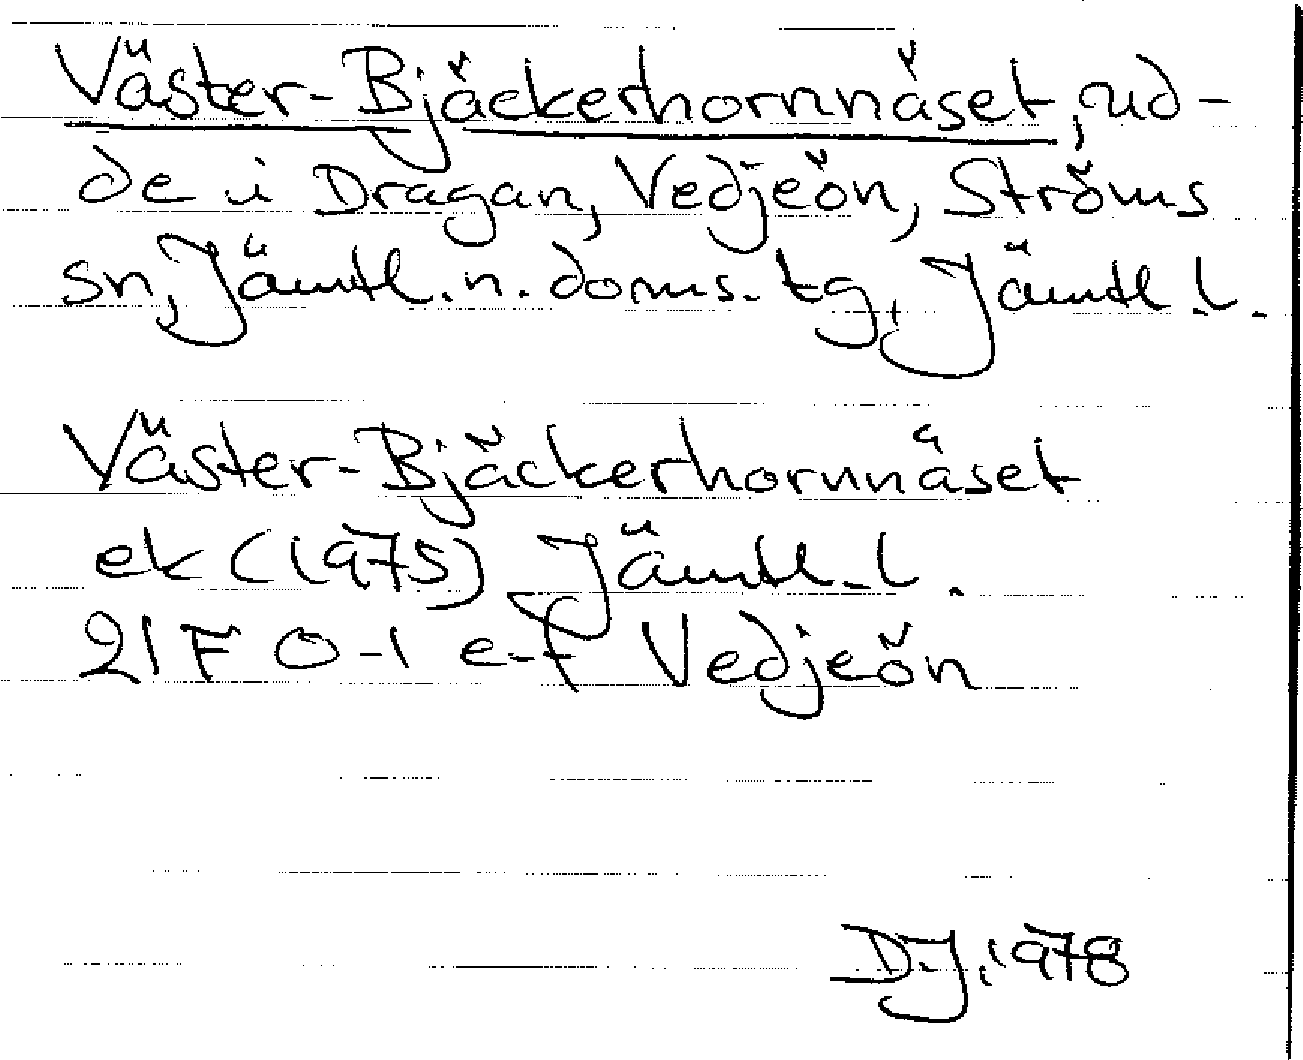 Väster-Bjäckerhornnäset, ud-
de i Dragan, Vedjeön, Ströms
sn, Jämtl. n. doms. tg, Jämtl. l.
Väster-Bjäckerhornnäset
ek (1975) Jämtl. l.
21 F 0-1 e-f Vedjeön
DJ, 1978